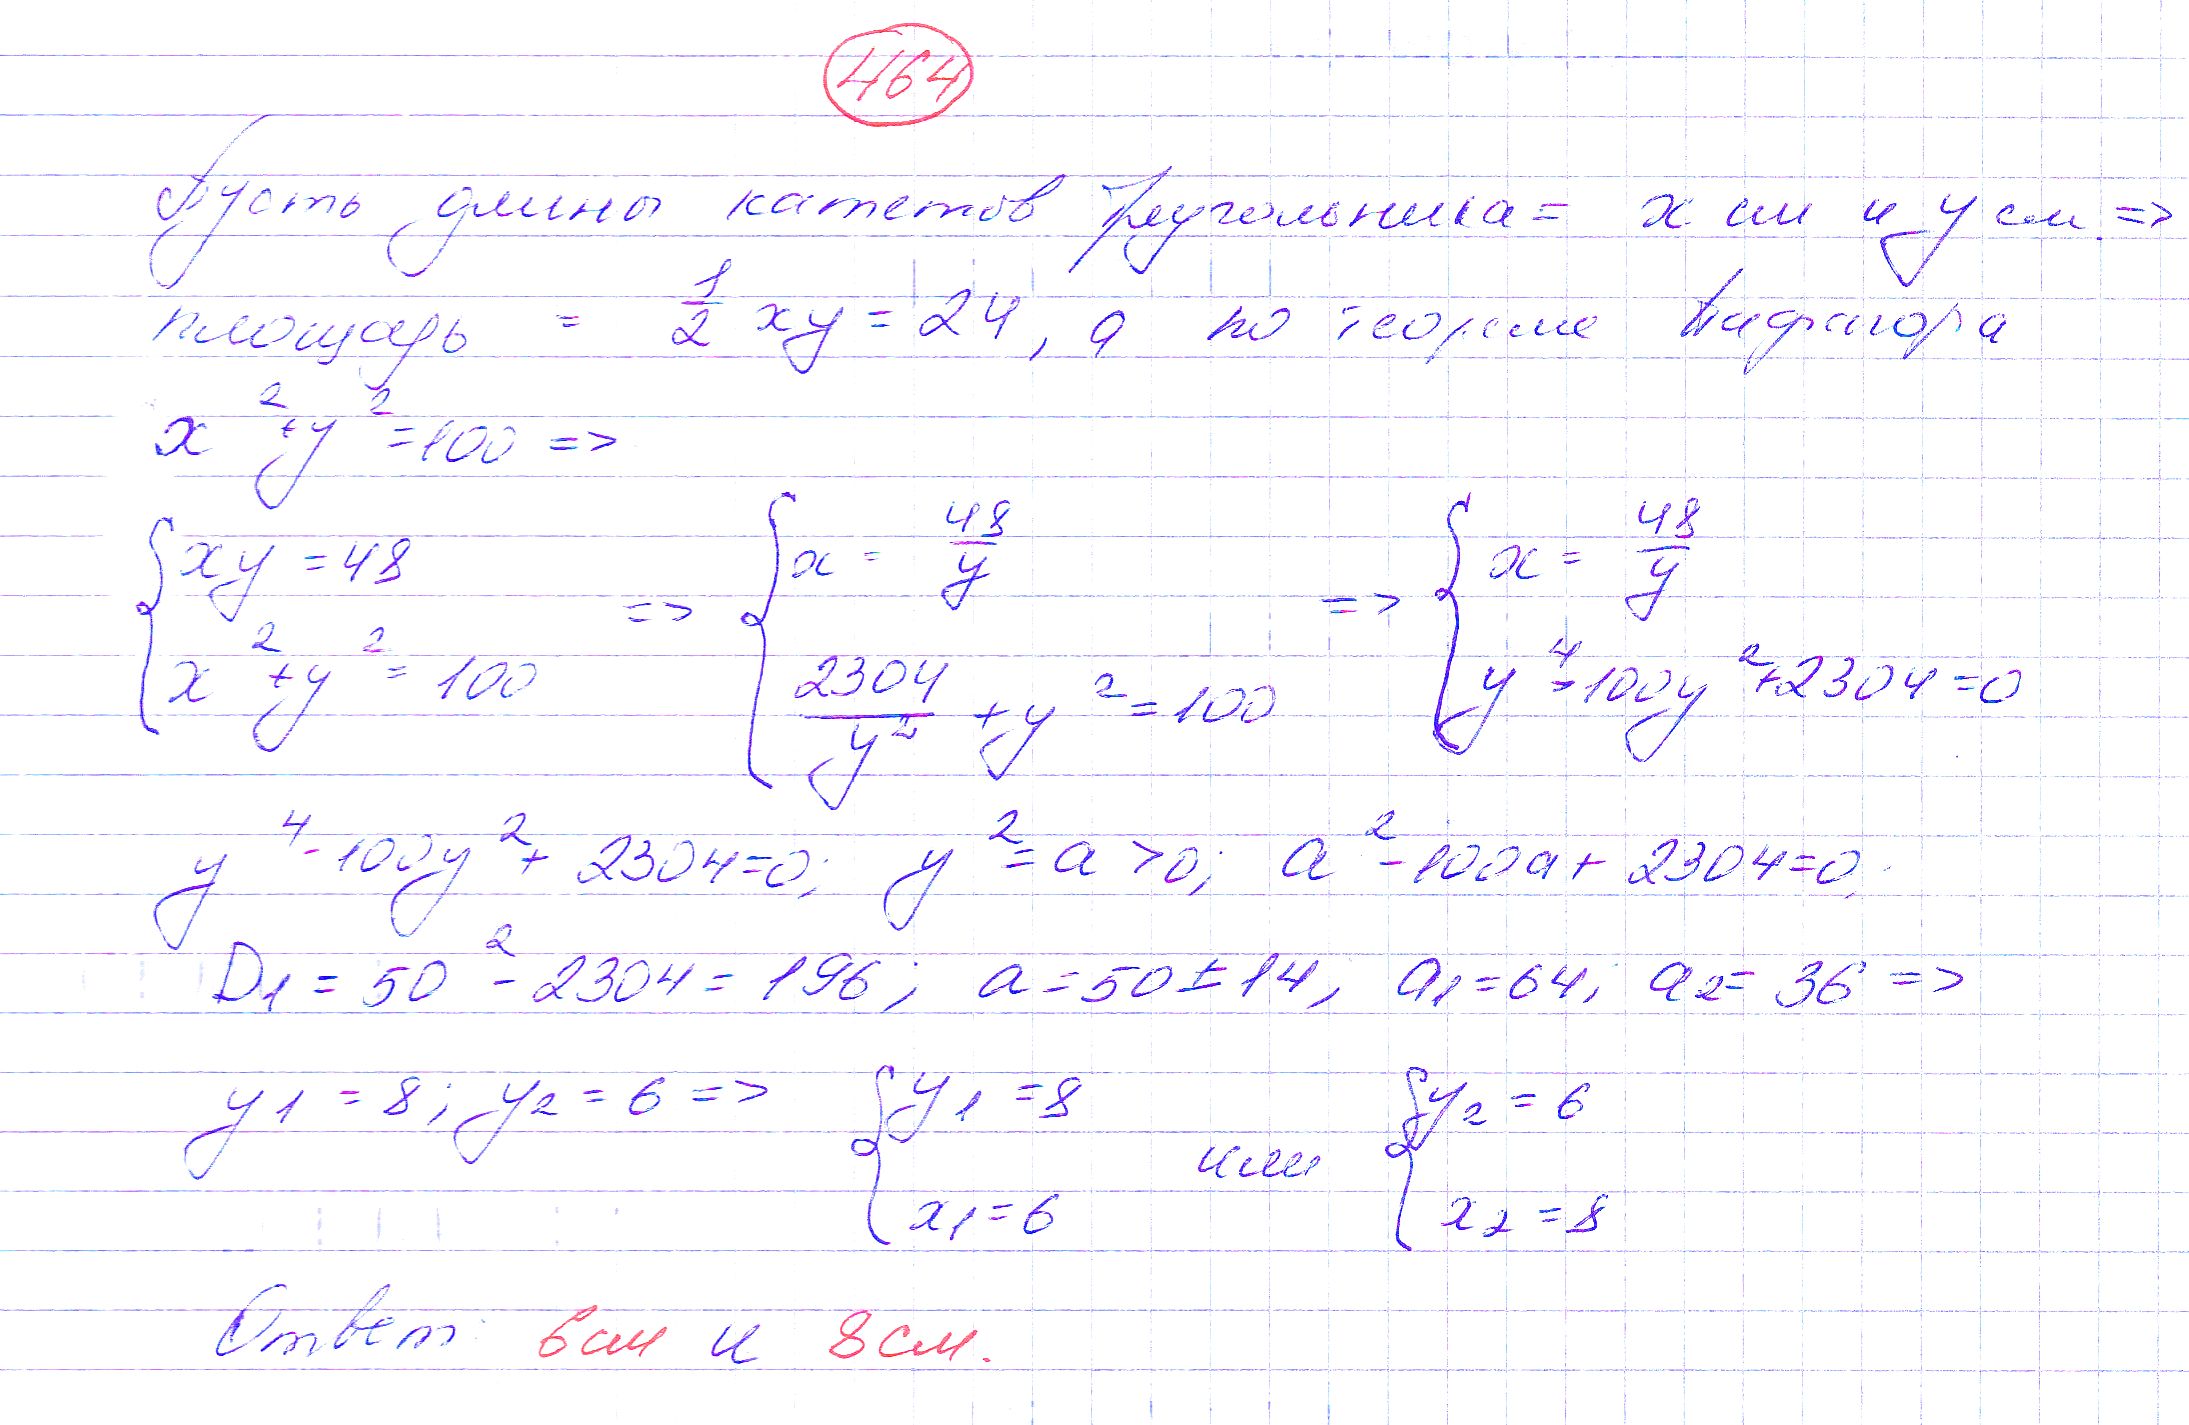 464
Пусть длины катетов треугольника = x см и y см. =>
площадь = 1/2 xy = 24, а по теореме Пифагора
x² + y² = 100 =>
{ xy = 48 => { x = 48/y => { x = 48/y
{ x² + y² = 100 { 2304/y² + y² = 100 { y⁴ - 100y² + 2304 = 0
y⁴ - 100y² + 2304 = 0; y² = a > 0; a² - 100a + 2304 = 0;
D₁ = 50² - 2304 = 196; a = 50 ± 14; a₁ = 64; a₂ = 36 =>
y₁ = 8; y₂ = 6 => { y₁ = 8 или { y₂ = 6
{ x₁ = 6 { x₂ = 8
Ответ: 6 см и 8 см.